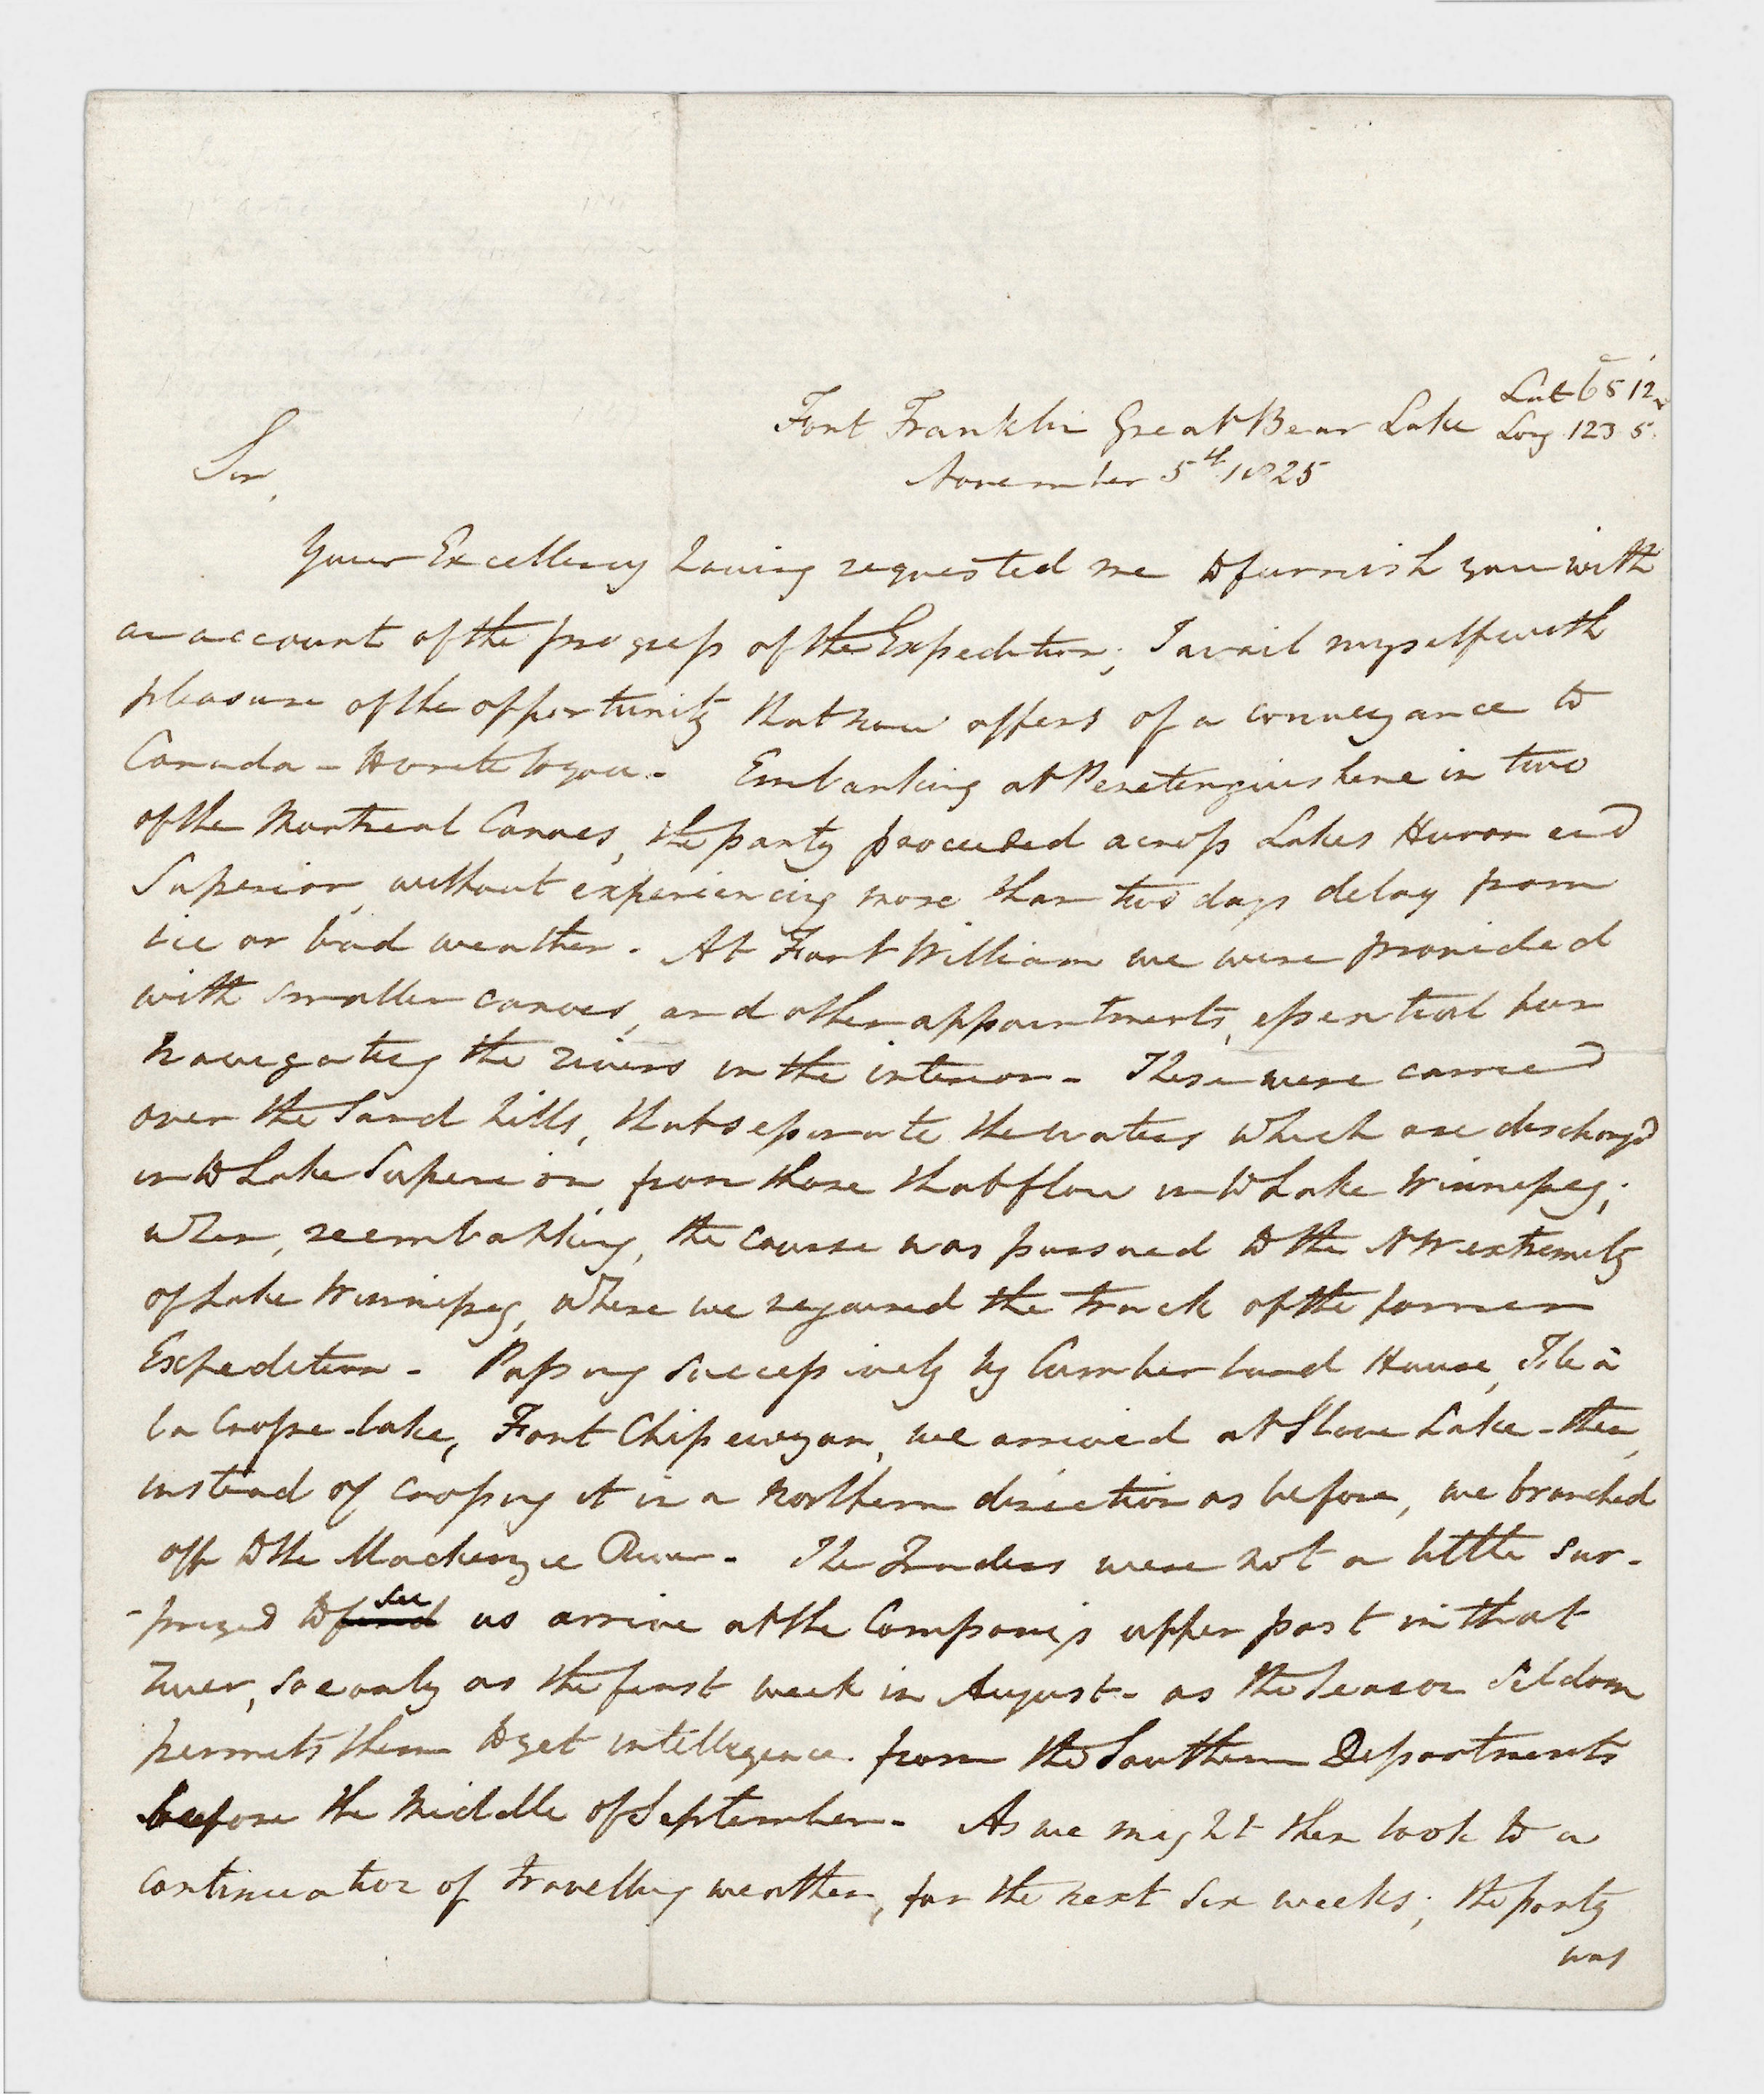 Lat 65° 12' N
Fort Franklin Great Bear Lake Long 123 5
Sir,
November 5th 1825
Your Excellency having requested me to furnish you with
an account of the progress of the Expedition; I avail myself with
pleasure of the opportunity that now offers of a conveyance to
Canada - to write to you. - Embarking at Penetenguishene in two
of the Montreal Canoes, the party proceeded across Lakes Huron and
Superior, without experiencing more than two days delay from
ice or bad weather. At Fort William we were provided
with smaller canoes, and other appointments, essential for
navigating the rivers in the interior - These were carried
over the Sand hills, that separate the waters which are discharg'd
into Lake Superior from those that flow into Lake Winnepeg;
when, reembarking, the course was pursued to the NW extremity
of Lake Winnipeg, where we regained the track of the former
Expedition - Passing successively by Cumberland House, Isle à
la Crosse lake, Fort Chipewyan, we arrived at Slave Lake - then,
instead of crossing it in a northern direction as before, we branched
off to the Mackenzie River. The Traders were not a little sur-
-prized to find see us arrive at the Company's upper post in that
river, so early as the first week in August - as the Season seldom
permits them to get intelligence from the Southern Departments
before the middle of September. As we might then look to a
continuation of travelling weather, for the next six weeks; the party
was